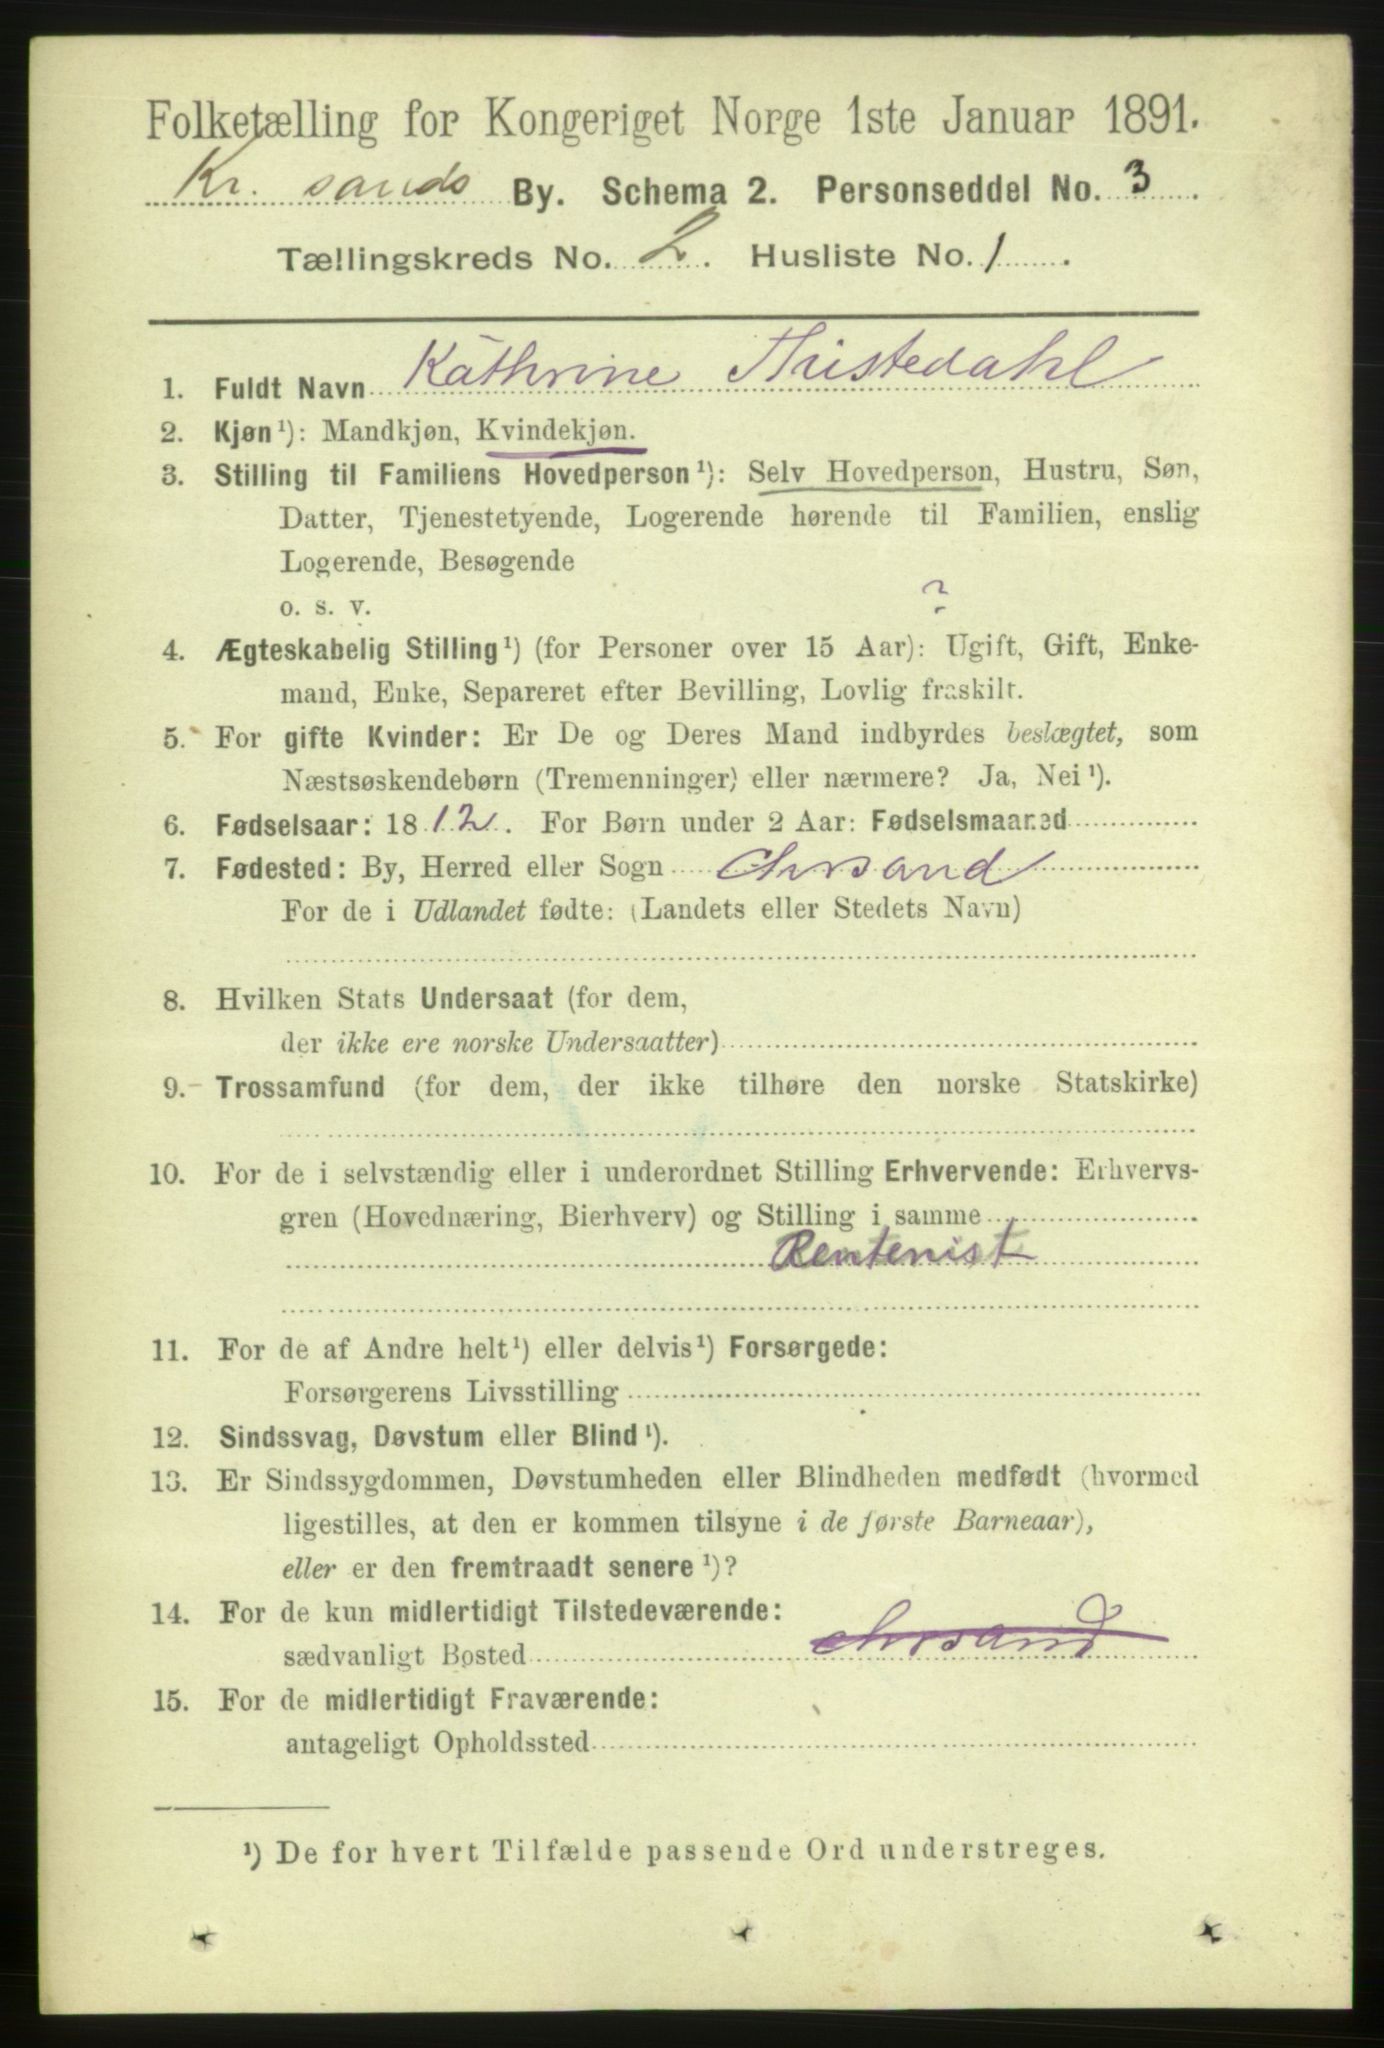 Folketælling for Kongeriget Norge 1ste Januar 1891.
Kr. sands By. Schema 2. Personseddel No. 3
Tællingskreds No. 2. Husliste No. 1.
1. Fuldt Navn Kathrine Thistedahl
2. Kjøn ¹): Mandkjøn, Kvindekjøn.
3. Stilling til Familiens Hovedperson ¹): Selv Hovedperson, Hustru, Søn,
Datter, Tjenestetyende, Logerende hørende til Familien, enslig
Logerende, Besøgende
o. s. v.
?
4. Ægteskabelig Stilling ¹) (for Personer over 15 Aar): Ugift, Gift, Enke-
mand, Enke, Separeret efter Bevilling, Lovlig fraskilt.
5. For gifte Kvinder: Er De og Deres Mand indbyrdes beslægtet, som
Næstsøskendebørn (Tremenninger) eller nærmere? Ja, Nei ¹).
6. Fødselsaar: 1812. For Børn under 2 Aar: Fødselsmaaned
7. Fødested: By, Herred eller Sogn Chrsand
For de i Udlandet fødte: (Landets eller Stedets Navn)
8. Hvilken Stats Undersaat (for dem,
der ikke ere norske Undersaatter)
9. Trossamfund (for dem, der ikke tilhøre den norske Statskirke)
10. For de i selvstændig eller i underordnet Stilling Erhvervende: Erhvervs-
gren (Hovednæring, Bierhverv) og Stilling i samme
Rentenist
11. For de af Andre helt ¹) eller delvis ¹) Forsørgede:
Forsørgerens Livsstilling
12. Sindssvag, Døvstum eller Blind ¹).
13. Er Sindssygdommen, Døvstumheden eller Blindheden medfødt (hvormed
ligestilles, at den er kommen tilsyne i de første Barneaar),
eller er den fremtraadt senere ¹)?
14. For de kun midlertidigt Tilstedeværende:
sædvanligt Bosted Chrsand
15. For de midlertidigt Fraværende:
antageligt Opholdssted
¹) De for hvert Tilfælde passende Ord understreges.